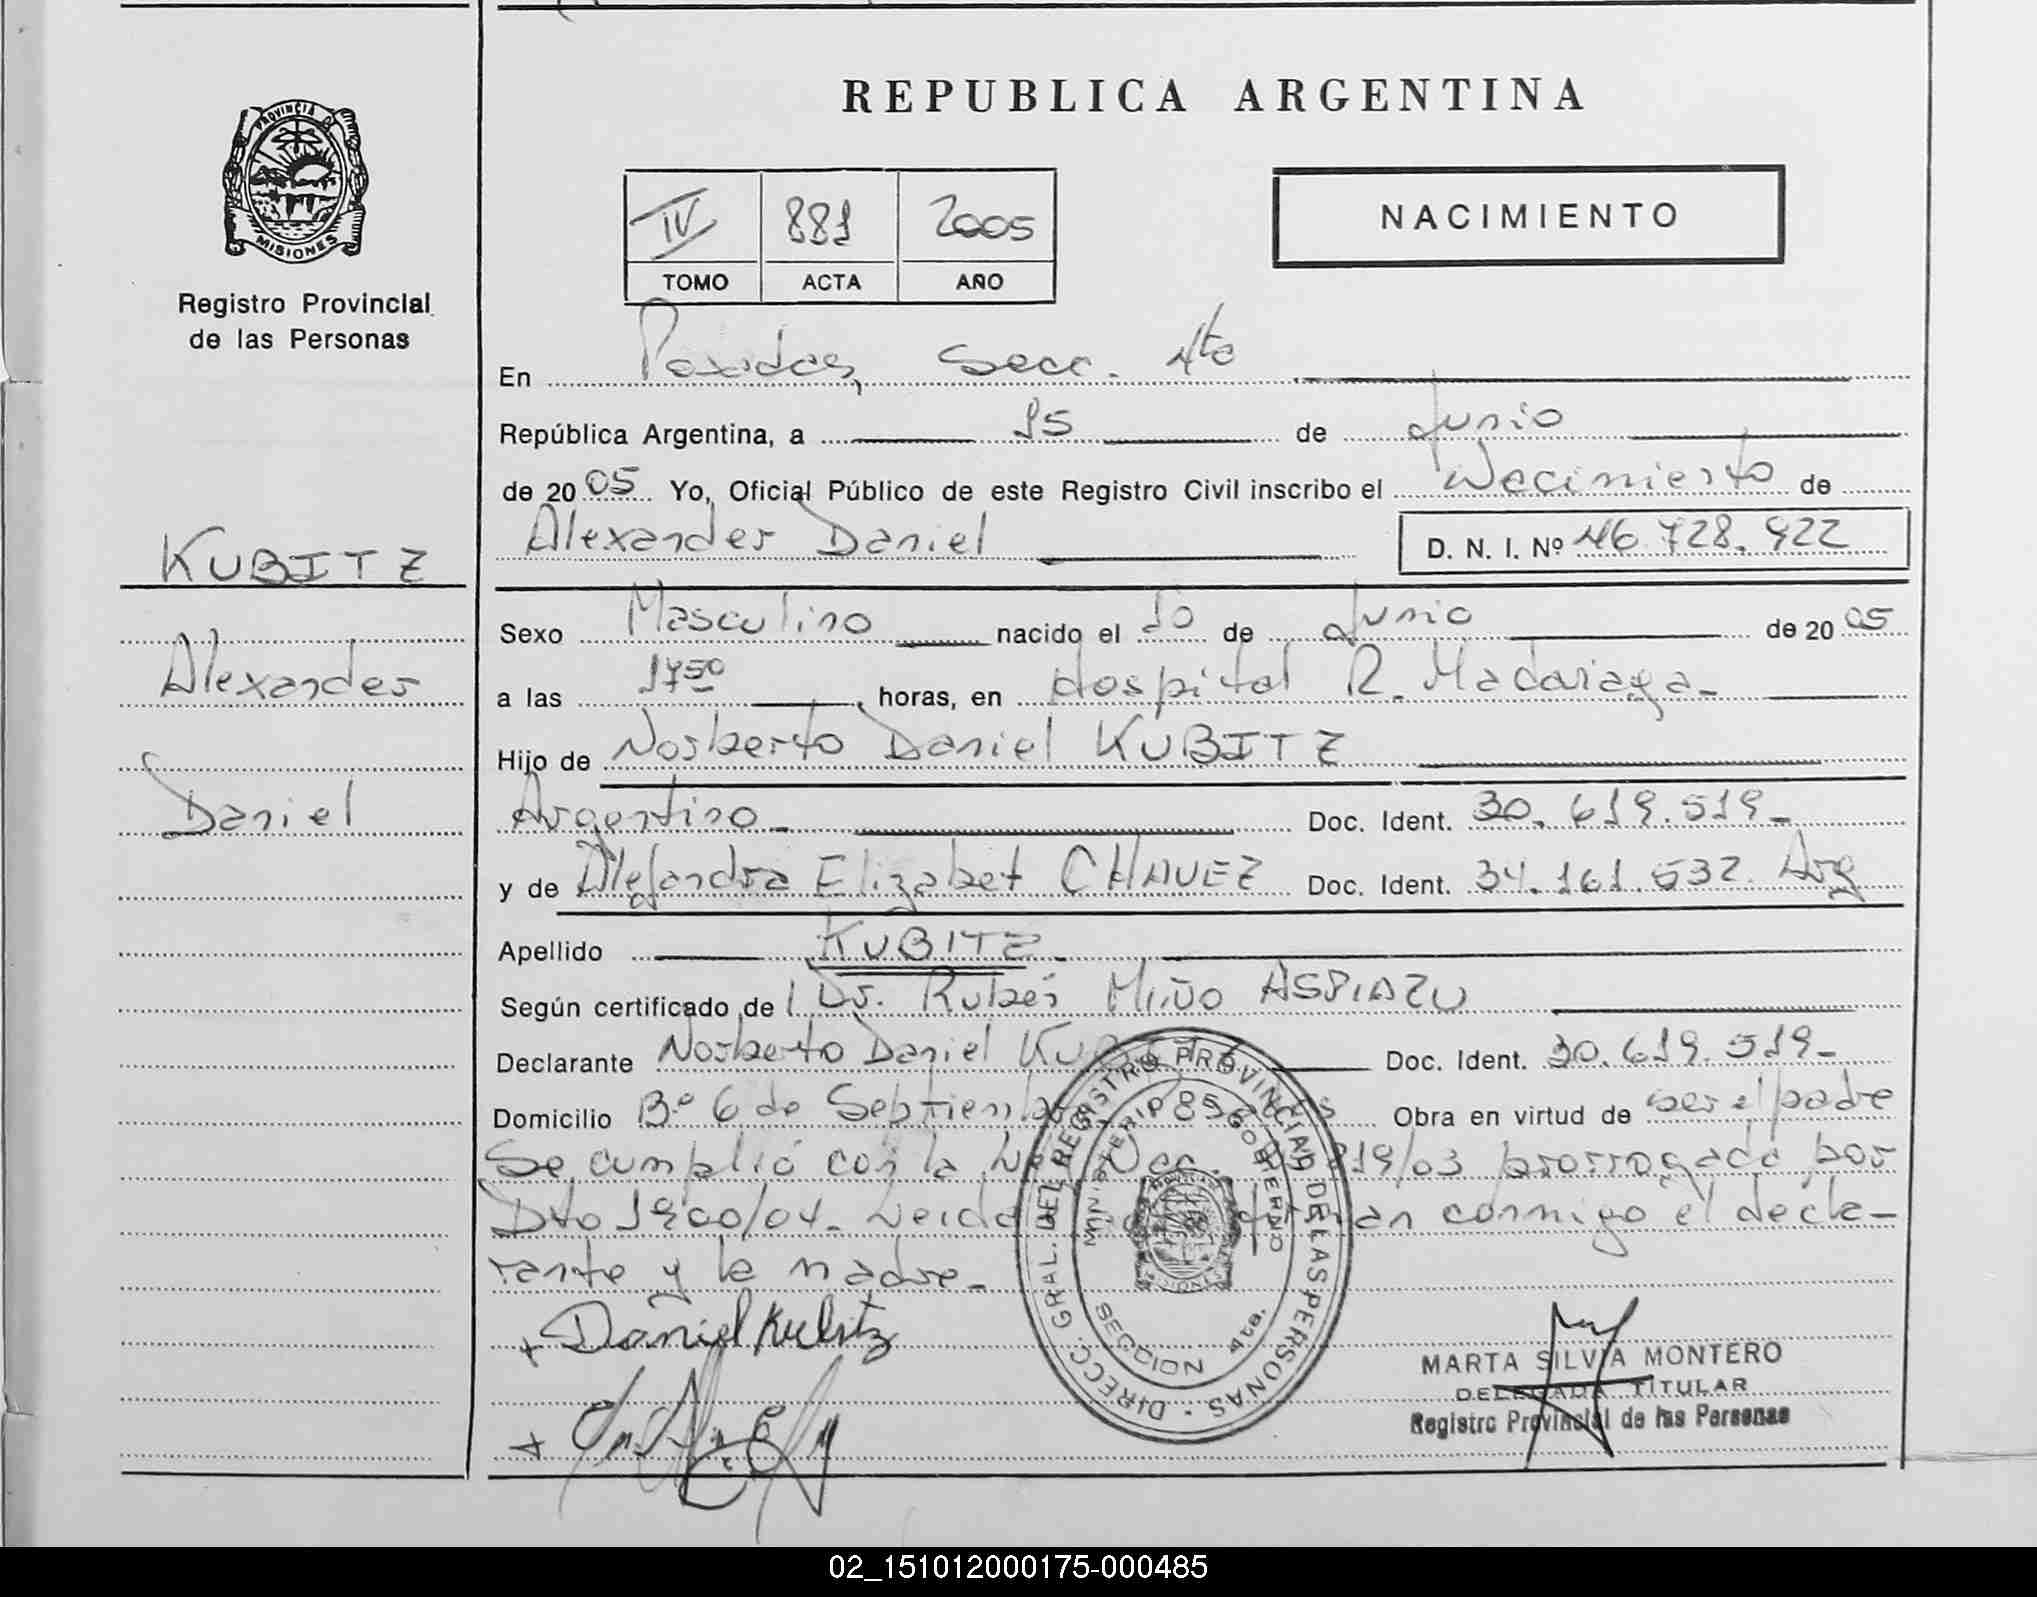 REPUBLICA ARGENTINA
PROVINCIA DE
MISIONES
Registro Provincial
de las Personas
IV 881 2005
TOMO ACTA AÑO
NACIMIENTO
En Posadas, Secc. 4ta
República Argentina, a 15 de Junio
de 2005 Yo, Oficial Público de este Registro Civil inscribo el Nacimiento de
Alexander Daniel D. N. I. Nº 46.728.922
KUBITZ
Alexander
Daniel
Sexo Masculino nacido el 10 de Junio de 2005
a las 17 50 horas, en Hospital R. Madariaga
Hijo de Norberto Daniel KUBITZ
Argentino Doc. Ident. 30.619.519
y de Alejandra Elizabet CHAVEZ Doc. Ident. 34.161.532. Arg
Apellido KUBITZ
Según certificado de Dr. Ruben Miño ASPIAZU
Declarante Norberto Daniel Doc. Ident. 30.619.519
Domicilio Bº 6 de Septiembre Obra en virtud de ser el padre
Se cumplió con la 819/03 prorrogado por
Dto 1900/04. Leida conmigo el decla-
rante y la madre.
Daniel Kubitz
DIRECC. GRAL. DEL REGISTRO PROVINCIAL DE LAS PERSONAS
MINISTERIO DE GOBIERNO
SECCION 4ta.
MARTA SILVIA MONTERO
DELEGADA TITULAR
Registro Provincial de las Personas
02_151012000175-000485